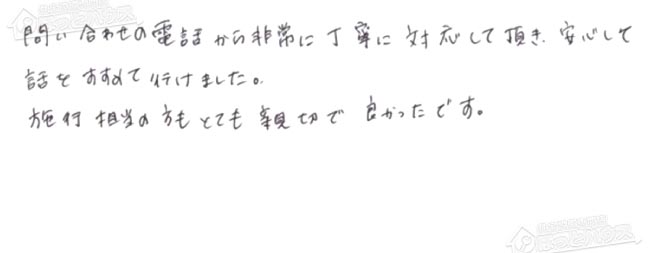 問い合わせの電話から非常に丁寧に対応して頂き、安心して
話をすすめて行けました。
施行相当の方もとても親切で良かったです。